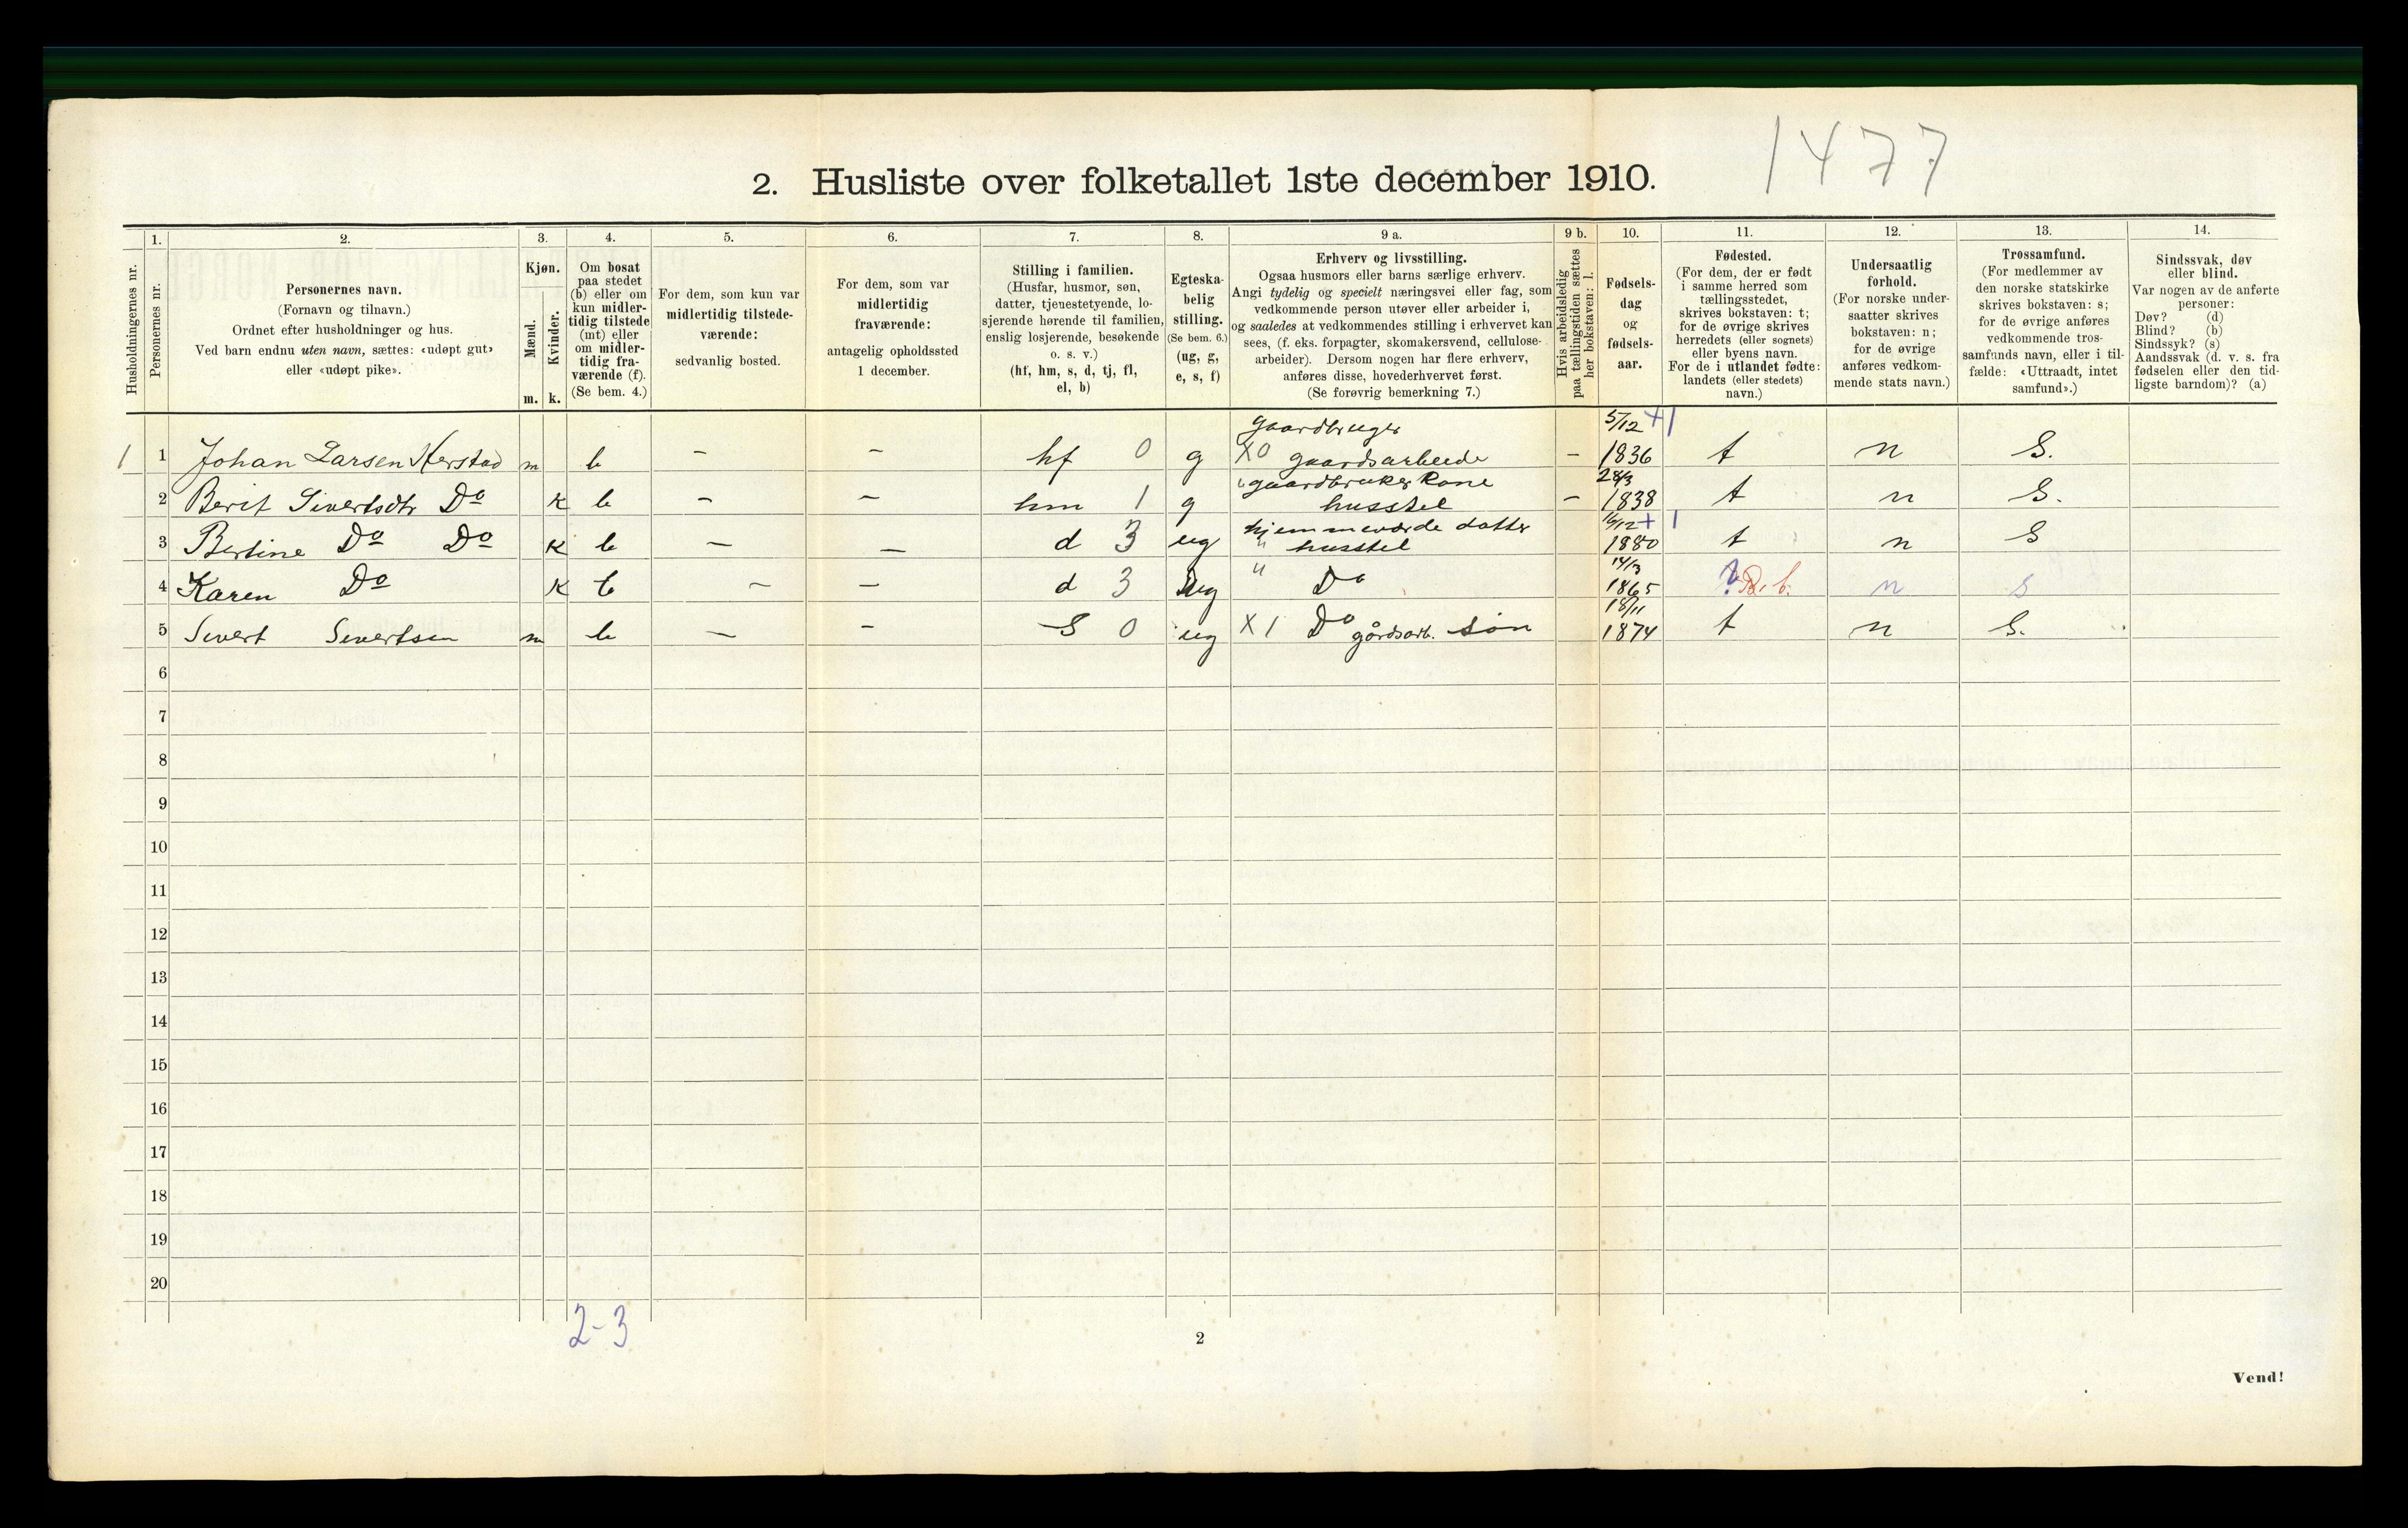 1477
2. Husliste over folketallet 1ste december 1910.
Husholdningernes nr.
1.
Personernes nr.
2.
Personernes navn.
(Fornavn og tilnavn.)
Ordnet efter husholdninger og hus.
Ved barn endnu uten navn, sættes: «udøpt gut»
eller «udøpt pike».
3.
Kjøn.
Mænd.
Kvinder.
m. k.
4.
Om bosat
paa stedet
(b) eller om
kun midler-
tidig tilstede
(mt) eller
om midler-
tidig fra-
værende (f).
(Se bem. 4.)
5.
For dem, som kun var
midlertidig tilstede-
værende:
sedvanlig bosted.
6.
For dem, som var
midlertidig
fraværende:
antagelig opholdssted
1 december.
7.
Stilling i familien.
(Husfar, husmor, søn,
datter, tjenestetyende, lo-
sjerende hørende til familien,
enslig losjerende, besøkende
o. s. v.)
(hf, hm, s, d, tj, fl,
el, b)
8.
Egteska-
belig
stilling.
(Se bem. 6.)
(ug, g,
e, s, f)
9 a.
Erhverv og livsstilling.
Ogsaa husmors eller barns særlige erhverv.
Angi tydelig og specielt næringsvei eller fag, som
vedkommende person utøver eller arbeider i,
og saaledes at vedkommendes stilling i erhvervet kan
sees, (f. eks. forpagter, skomakersvend, cellulose-
arbeider). Dersom nogen har flere erhverv,
anføres disse, hovederhvervet først.
(Se forøvrig bemerkning 7.)
9 b.
Hvis arbeidsledig
paa tællingstiden sættes
her bokstaven: l.
10.
Fødsels-
dag
og
fødsels-
aar.
11.
Fødested.
(For dem, der er født
i samme herred som
tællingsstedet,
skrives bokstaven: t;
for de øvrige skrives
herredets (eller sognets)
eller byens navn.
For de i utlandet fødte:
landets (eller stedets)
navn.)
12.
Undersaatlig
forhold.
(For norske under-
saatter skrives
bokstaven: n;
for de øvrige
anføres vedkom-
mende stats navn.)
13.
Trossamfund.
(For medlemmer av
den norske statskirke
skrives bokstaven: s;
for de øvrige anføres
vedkommende tros-
samfunds navn, eller i til-
fælde: «Uttraadt, intet
samfund».)
14.
Sindssvak, døv
eller blind.
Var nogen av de anførte
personer:
Døv? (d)
Blind? (b)
Sindssyk? (s)
Aandssvak (d. v. s. fra
fødselen eller den tid-
ligste barndom)? (a)
gaardbruger 5/12 +1
1 1 Johan Larsen Herstad m b - - hf 0 g X0 gaardsarbeide - 1836 t n S.
" gaardbruker Kone 28/3
2 Berit Sivertsdtr Do K b - - hm 1 g husstel - 1838 t n S.
hjemmeværde datter 16/12 + 1
3 Bertine Do Do K b - - d 3 ug " husstel 1880 t n S
14/3
4 Karen Do K b - - d 3 ug " Do 1865 ? R. b. n s
18/11
5 Sivert Sivertsen m b - - S 0 ug X 1 Do gårdsarb. søn 1874 t n S.
6
7
8
9
10
11
12
13
14
15
16
17
18
19
20
2-3
2
Vend!